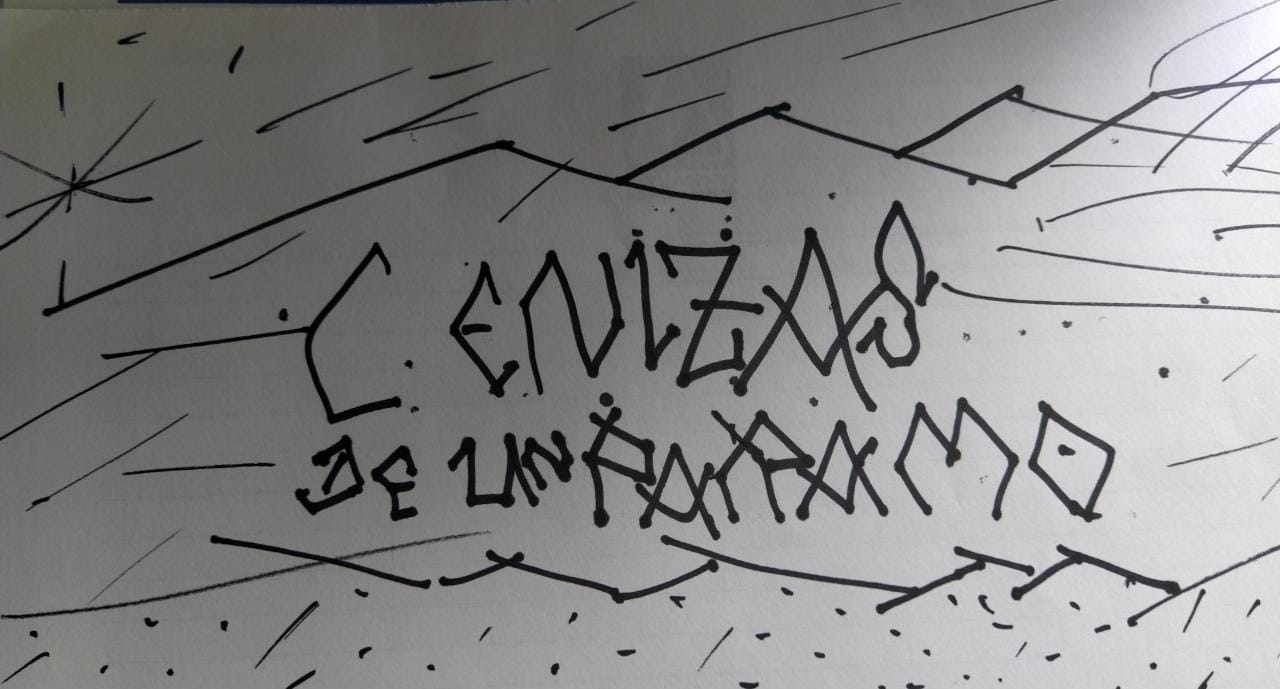 CENIZAS
DE UN PARAMO